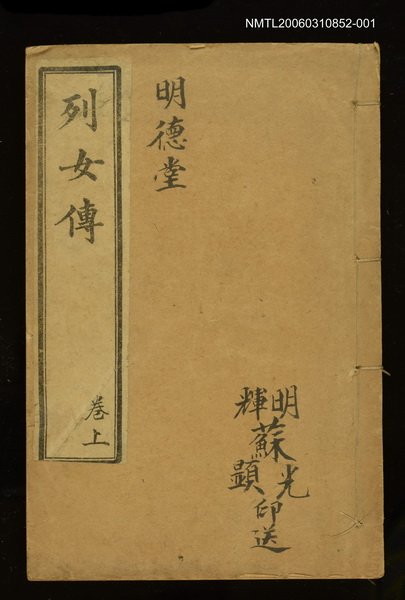 NMTL20060310852-001
列女傳
卷上
明德堂
明輝
蘇
光顯
印送